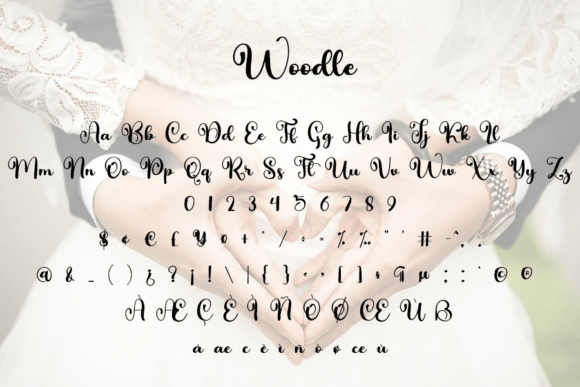 Woodle
Aa Bb Cc Dd Ee Ff Gg Hh Ii Jj Kk Ll
Mm Nn Oo Pp Qq Rr Ss Tt Uu Vv Ww Xx Yy Zz
0 1 2 3 4 5 6 7 8 9
$ ¢ € £ ¥ o + * / ÷ = % ‰ " ' # - ^ . ,
@ & _ ( ) ¿ ? ¡ ! \ | { } < > [ ] § ¶ µ ; : ` © ®
À Æ Ç È Ì Ñ Ò Ø Œ Ù ß
à æ c è ì ñ ò ø œ ù